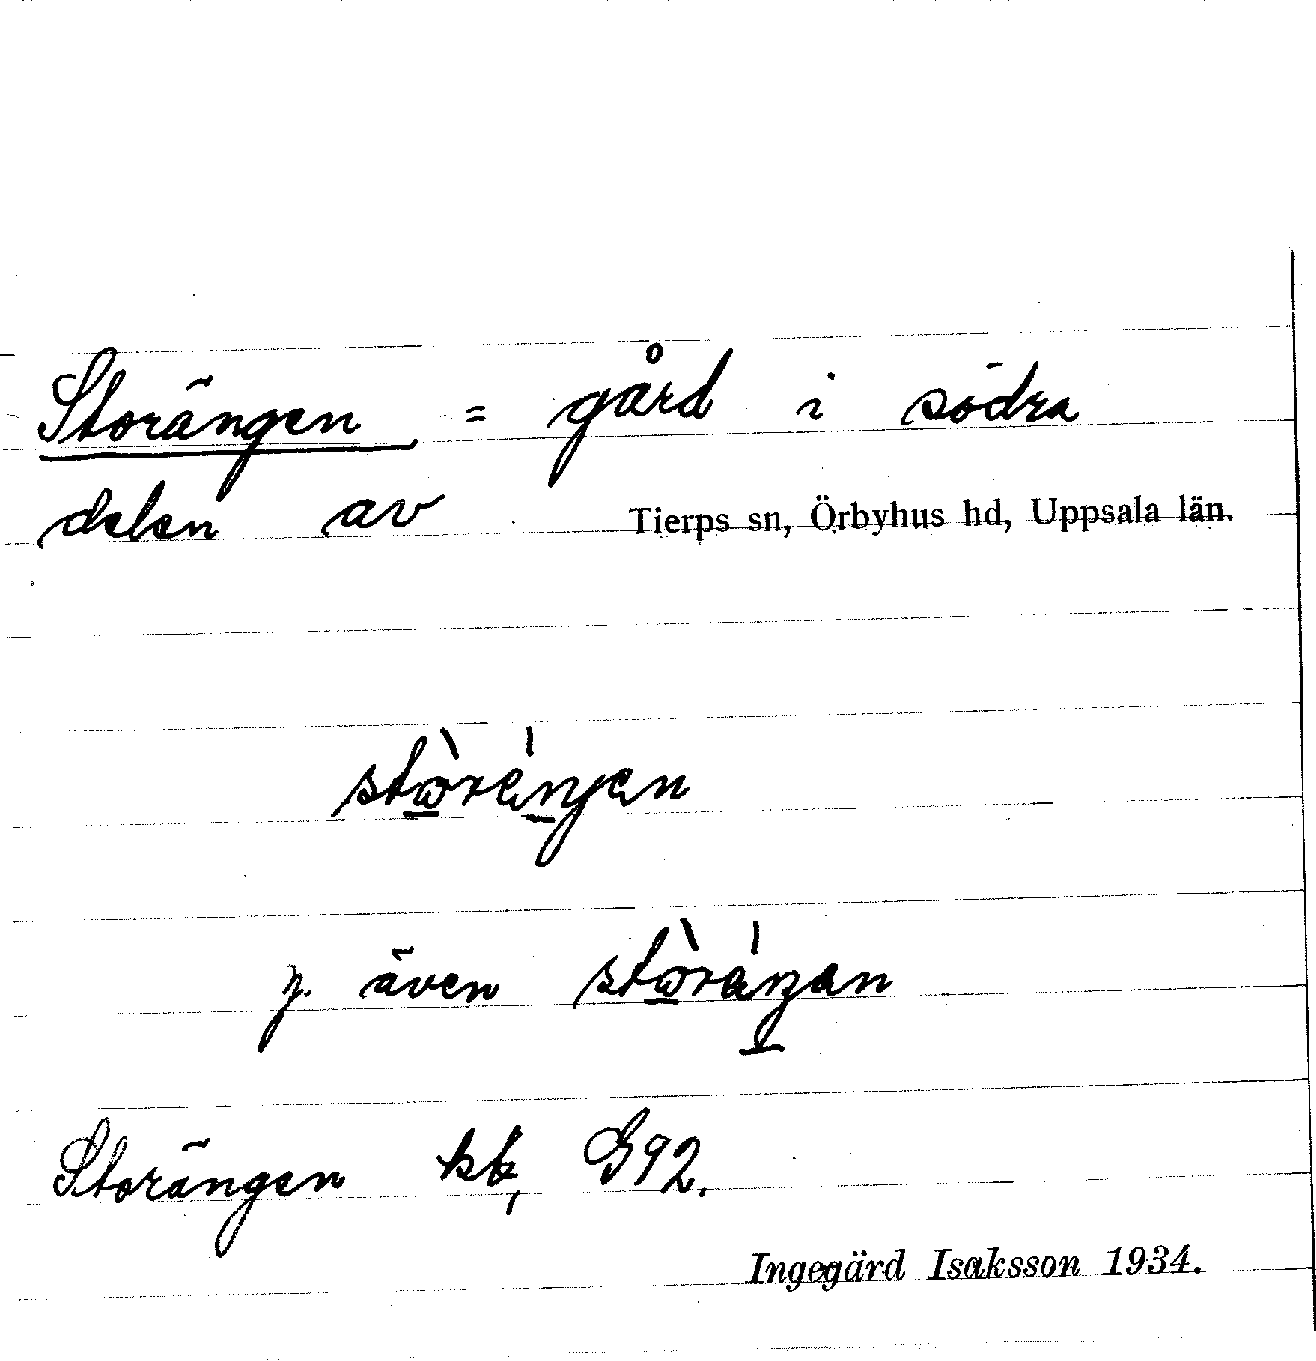 Storängen = gård i södra
delen av Tierps sn, Örbyhus hd, Uppsala län.
stòréngen
även
Storängen G92.
Ingegärd Isaksson 1934.